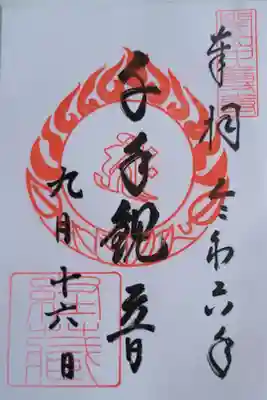 奉拝 令和六年
千手観音
九月十六日